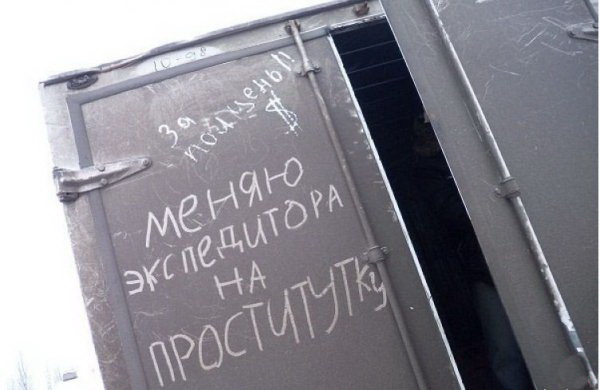 10-98
За
пол цены!!
$
меняю
экспедитора
на
проститутку